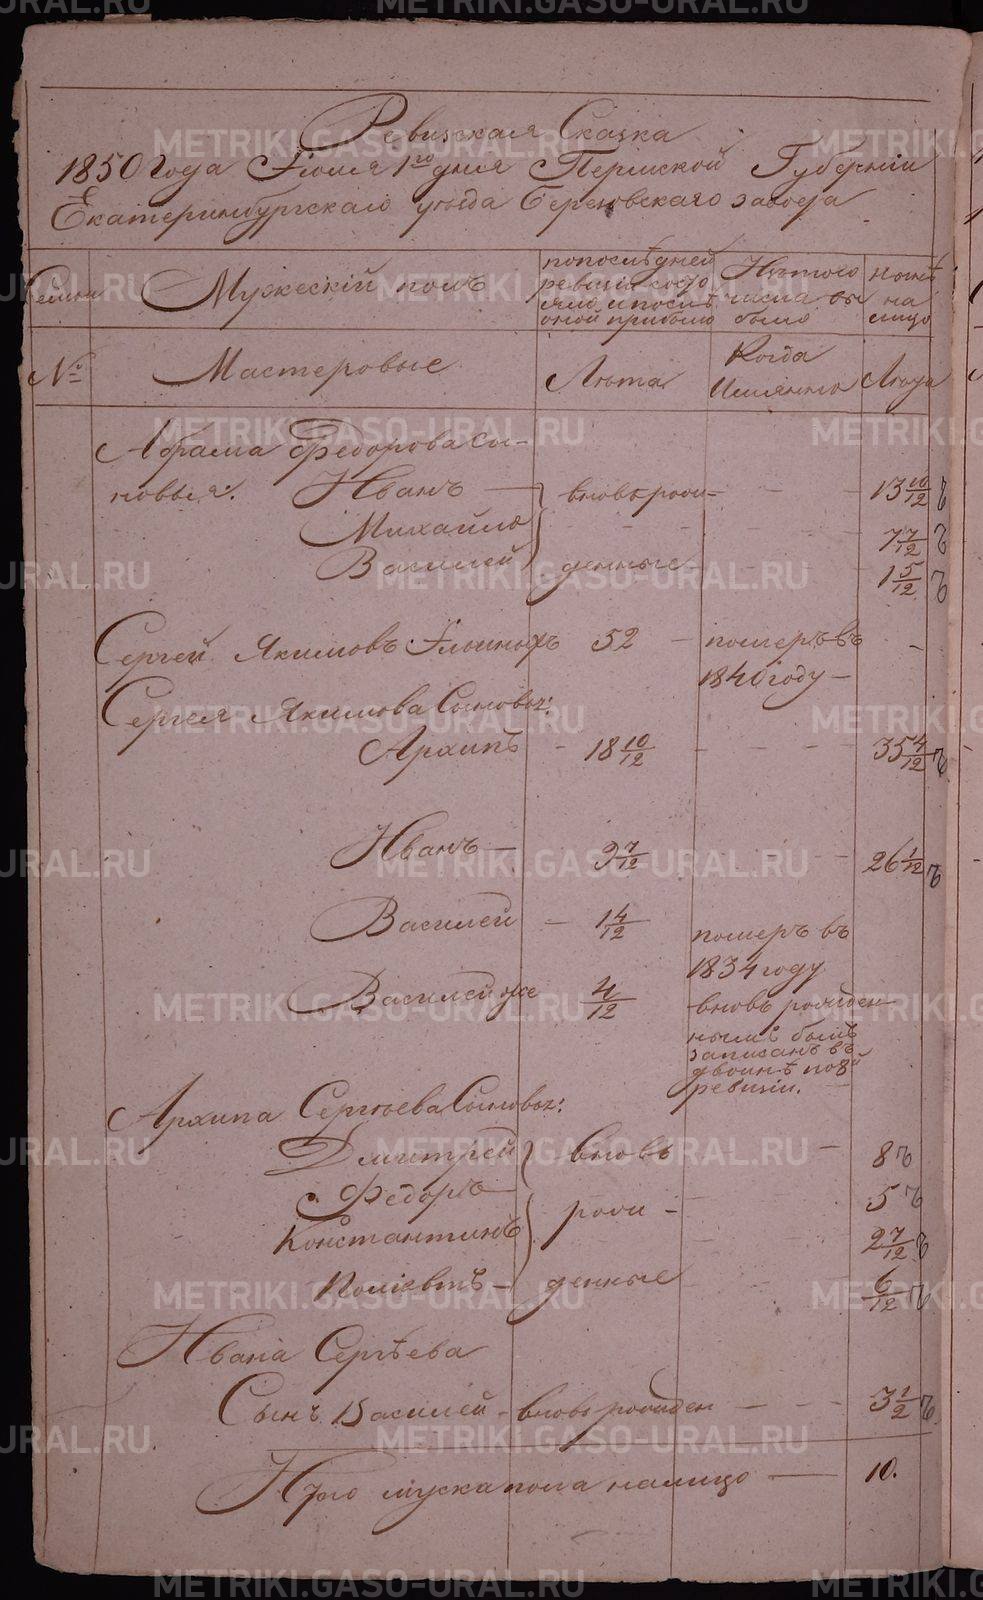 Ревизская Сказка
1850 года Іюля 1го дня Пермской Губерніи
Екатеринбургскаго уѣзда Березовскаго завода
Семьи
Мужескій полъ
по послѣдней ревизіи состояло и послѣ оной прибыло
Изъ того числа выбыло
нынѣ на лицо
№
Мастеровые
Лѣта
Когда Имянно
Лѣта
Абрама Федорова сы-
новья: Иванъ — вновь рож- — — 13 10/12
Михайло — — — 7 7/12
Василей денные — — 1 5/12
Сергей Якимовъ 52 — померъ въ —
1840 году —
Сергея Якимова Сыновья:
Архипъ — 18 10/12 — — — 35 4/12
Иванъ — 9 7/12 — — 26 1/12
Василей — 1 4/12 померъ въ
1834 году
Василей же 4/12 вновь рожден
ной былъ
записанъ въ
двойнѣ по 8й
ревизіи. —
Архипа Сергѣева Сыновья:
Дмитрей вновь — 8
Федоръ 5
Константинъ рож — 2 7/12
Поліевтъ — денные 6/12
Ивана Сергѣева
Сынъ Василей — вновь рожден — — — 3 1/2
Итого муска пола налицо — 10.
METRIKI.GASO-URAL.RU